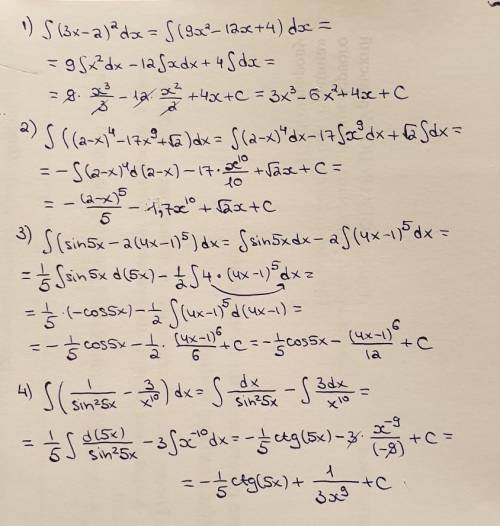 1) ∫(3x-2)²dx = ∫(9x²-12x+4) dx =
= 9∫x²dx - 12∫xdx + 4∫dx =
= 9·x³/3 - 12·x²/2 + 4x + C = 3x³ - 6x² + 4x + C
2) ∫((2-x)⁴-17x⁹+√2)dx = ∫(2-x)⁴dx - 17∫x⁹dx + √2∫dx =
= -∫(2-x)⁴d(2-x) - 17·x¹⁰/10 + √2x + C =
= -(2-x)⁵/5 - 1,7x¹⁰ + √2x + C
3) ∫(sin5x - 2(4x-1)⁵)dx = ∫sin5xdx - 2∫(4x-1)⁵dx =
= 1/5∫sin5x d(5x) - 1/2∫4·(4x-1)⁵dx =
= 1/5·(-cos5x) - 1/2∫(4x-1)⁵d(4x-1) =
= -1/5cos5x - 1/2·(4x-1)⁶/6 + C = -1/5cos5x - (4x-1)⁶/12 + C
4) ∫(1/sin²5x - 3/x¹⁰)dx = ∫dx/sin²5x - ∫3dx/x¹⁰ =
= 1/5∫d(5x)/sin²5x - 3∫x⁻¹⁰dx = -1/5ctg(5x) - 3·x⁻⁹/(-9) + C =
= -1/5ctg(5x) + 1/3x⁹ + C